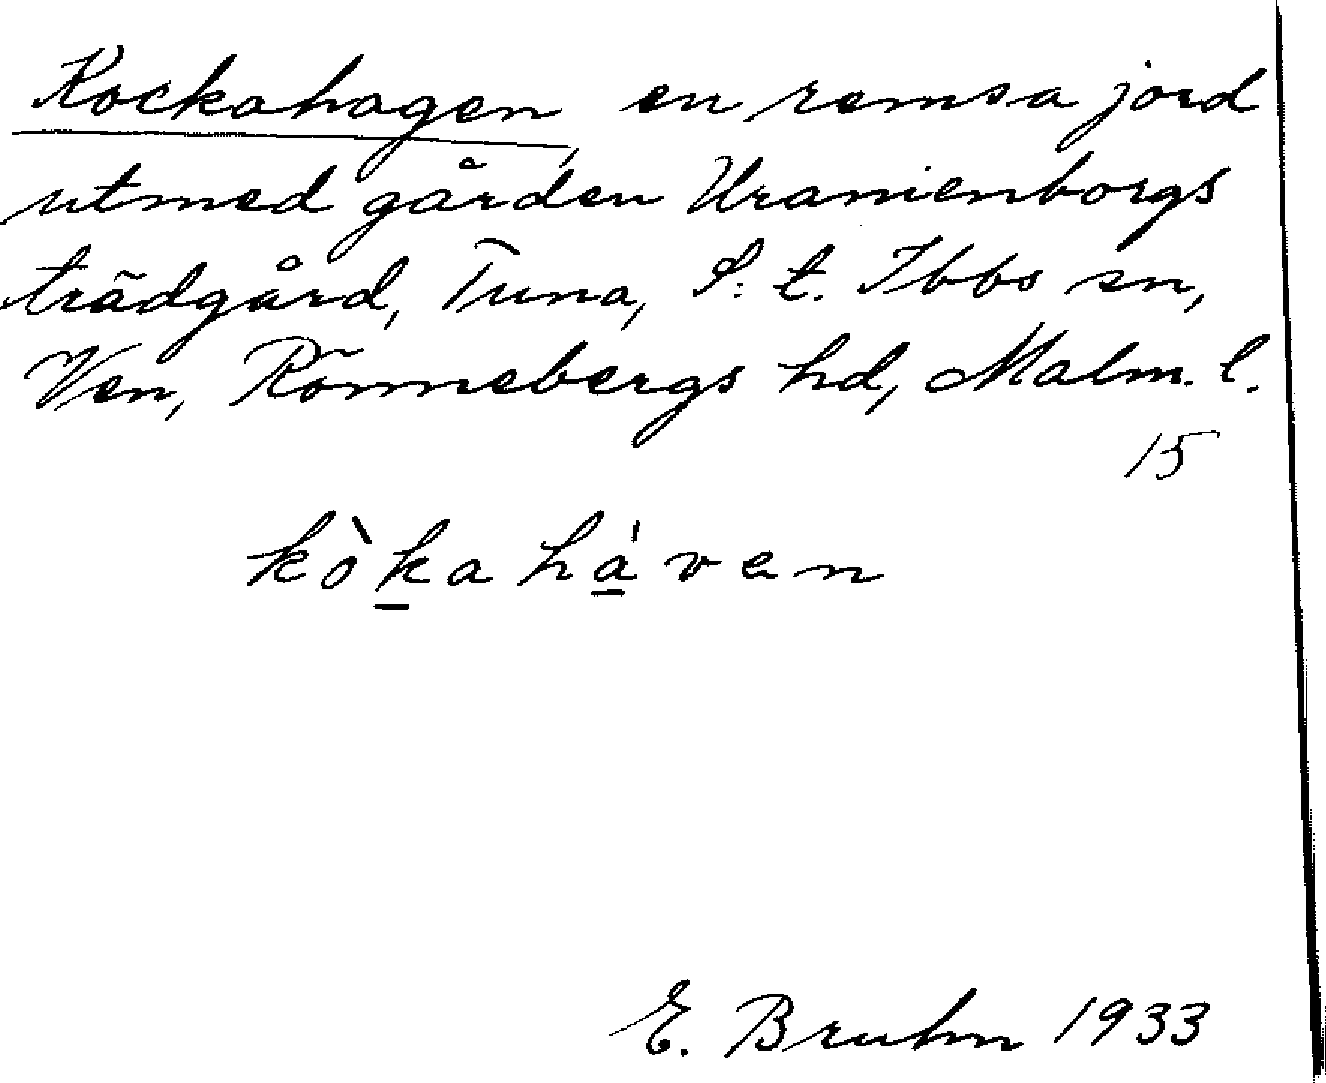 Kockahagen, en remsa jord
utmed gården Uranienborgs
trädgård, Tuna, S:t. Ibbs sn,
Ven, Rönnebergs hd, Malm. l.
15
kòkaháven
E. Bruhn 1933